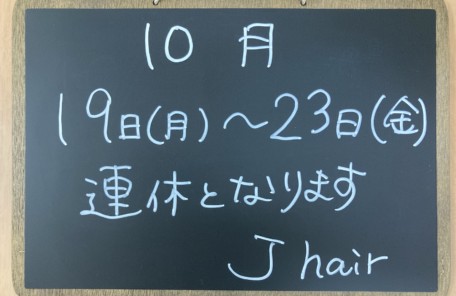 10 月
19日(月)〜23日(金)
連休となります
J hair